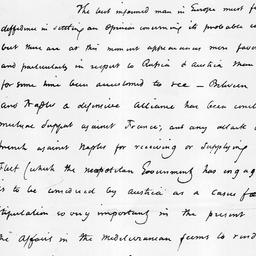 The best informed man in Europe must f
diffidence in settling an Opinion concerning its probable c
but there are at this moment appearances more favou
and particularly in respect to Russia & Austria than
for some time been accustomed to see – Between
and Naples a defensive Alliance has been concl
mutual Support against France; and any attack o
French against Naples for receiving or supplying
Fleet (which the neapolitan Government has engag
is to be considered by Austria as a casus foe
stipulation so very important in the present
the Affairs in the Mediterranean seems to rend